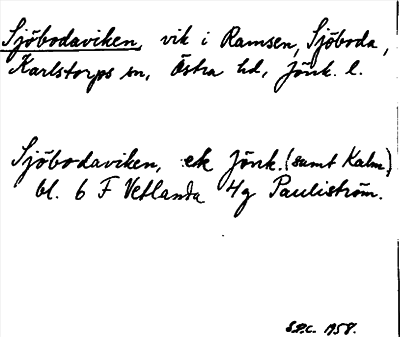 Sjöbodaviken, vik i Ramsen, Sjöboda,
Karlstorps sn, Östra hd, Jönk. l.
Sjöbodaviken, ek Jönk. (samt Kalm)
bl. 6 F Vetlanda 4g Pauliström.
S.P.C. 1958.